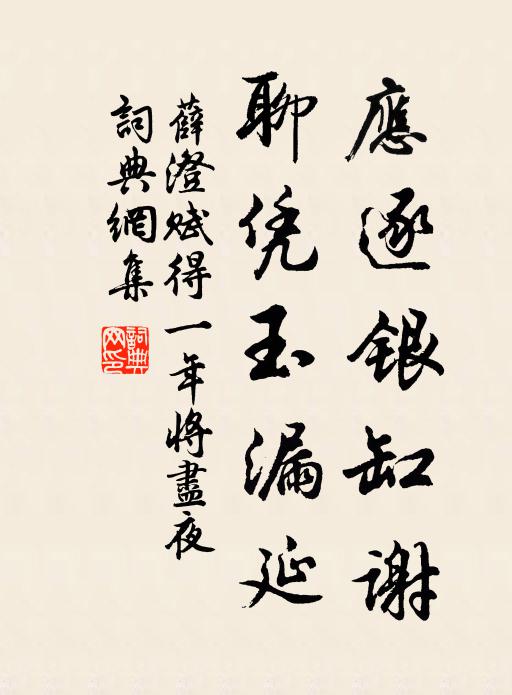 應逐銀缸謝
聊凭玉漏延
薛澄賦得一年將盡夜
詞典網集
詞典网印